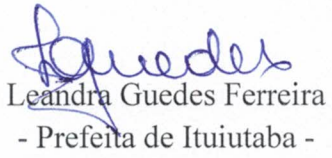 Guedes
Leandra Guedes Ferreira
- Prefeita de Ituiutaba -